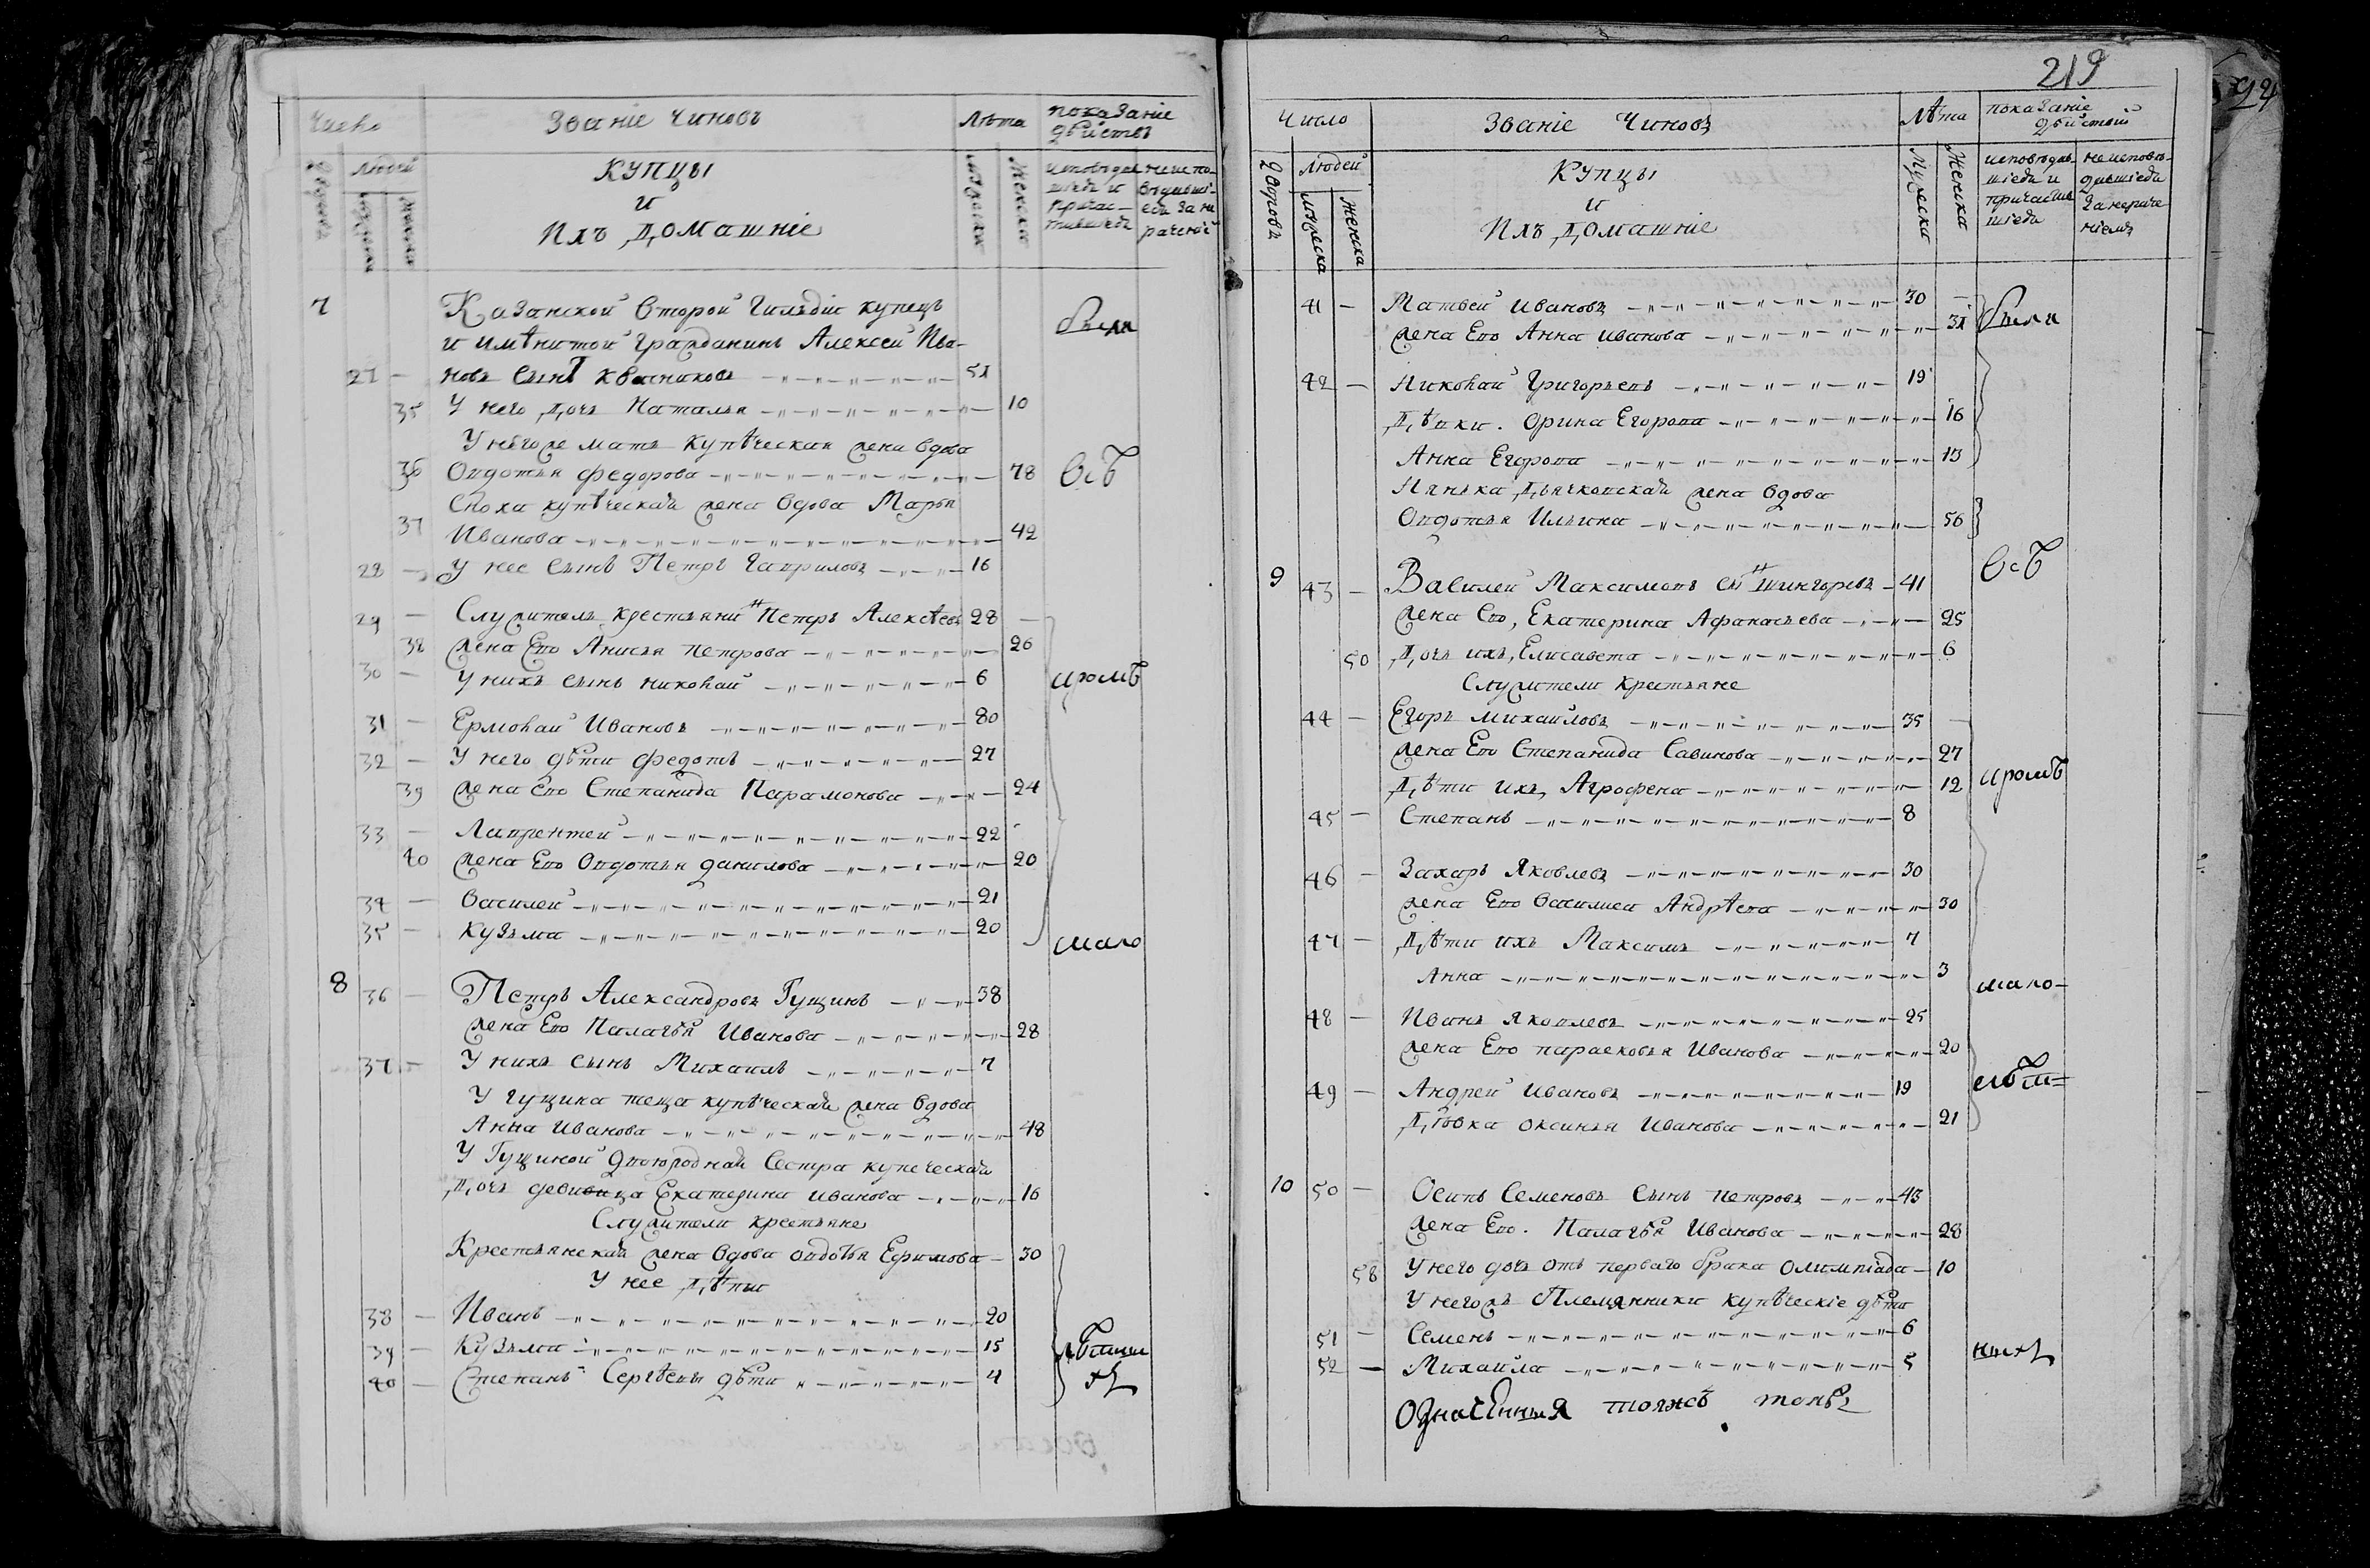 Число
Званіе Чиновъ
Лѣта
показаніе
дѣйствъ
Дворовъ
людей
мужеска
женска
КУПЦЫ
и
Ихъ Домашніе
мужеска
женска
исповѣдав
шіеся и
причас-
тившіеся
неиспо-
вѣдавші-
еся за не
раченіе
7
Казанской второй Гильдіи купецъ
и имѣнитой гражданинъ Алексей Ива-
27 — новъ сынъ Квасниковъ 51
35 У него дочь Наталья 10
У негоже мать купѣческая жена вдова
36 Овдотья Федорова 78
Сноха купѣческая жена вдова Марья
37 Иванова 42
28 — У нее сынъ Петръ Гавриловъ 16
29 — Служитель крестьянинъ Петръ Алексѣевъ 28
38 жена Его Анисья Петрова 26
30 — У нихъ сынъ Николай 6
31 — Ермолай Ивановъ 80
32 — У него дѣти Федотъ 27
39 жена его Степанида Парамонова 24
33 — Лаврентей 22
40 жена Его Овдотья Данилова 20
34 — Василей 21
35 — Кузьма 20
8 36 — Петръ Александровъ Гущинъ 38
жена Его Палагѣя Иванова 28
37 — У нихъ сынъ Михаилъ 7
У Гущина теща купѣческая жена вдова
Анна Иванова 48
У Гущиной двоюродная Сестра купеческая
дочь девица Екатерина Иванова 16
Служители крестьяне
Крестьянская жена вдова Овдотья Ефимова 30
У нее дѣти
38 — Иванъ 20
39 — Кузьма 15
40 — Степанъ Сергѣевы дѣти 4
были
всѣ
кромѣ
мало
лѣтны
хъ
219
Число
Званіе Чиновъ
Лѣта
показаніе
дѣйствій
Дворовъ
людей
мужеска
женска
Купцы
и
Ихъ Домашніе
Мужеска
Женска
исповѣдав-
шіеся и
причастив
шіеся
неисповѣ-
давшіеся
за нераче
ніемъ
41 — Матвей Ивановъ 30
жена Его Анна Иванова 31
42 — Николай Григорьевъ 19
Дѣвки. Орина Егорова 16
Анна Егорова 13
Нянька дьячковская жена вдова
Овдотья Ильина 56
9 43 — Василей Максимовъ сынъ Шингоревъ 41
жена Его, Екатерина Афанасьева 25
50 Дочь ихъ, Елисавета 6
Служители крестьяне
44 — Егоръ Михайловъ 35
жена Его Степанида Савинова 27
Дѣти ихъ, Агрофена 12
45 — Степанъ 8
46 — Захаръ Яковлевъ 30
жена Его Василиса Андрѣева 30
47 — Дѣти ихъ Максимъ 7
Анна 3
48 — Иванъ Яковлевъ 25
жена Его парасковья Иванова 20
49 — Андрей Ивановъ 19
Дѣвка Оксинья Иванова 21
10 50 — Осипъ Семеновъ сынъ Петровъ 43
жена Его. Палагѣя Иванова 28
58 У него дочь отъ перваго брака Олимпіада 10
У негожъ Племянники купѣческіе дѣти
51 — Семенъ 6
52 — Михаила 5
были
всѣ
кромѣ
мало-
лѣт=
ныхъ